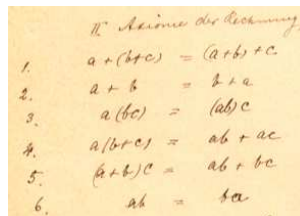 II Axiome der Rechnung
1. a + (b+c) = (a+b) + c
2. a + b = b + a
3. a(bc) = (ab)c
4. a(b+c) = ab + ac
5. (a+b)c = ab + bc
6. ab = ba